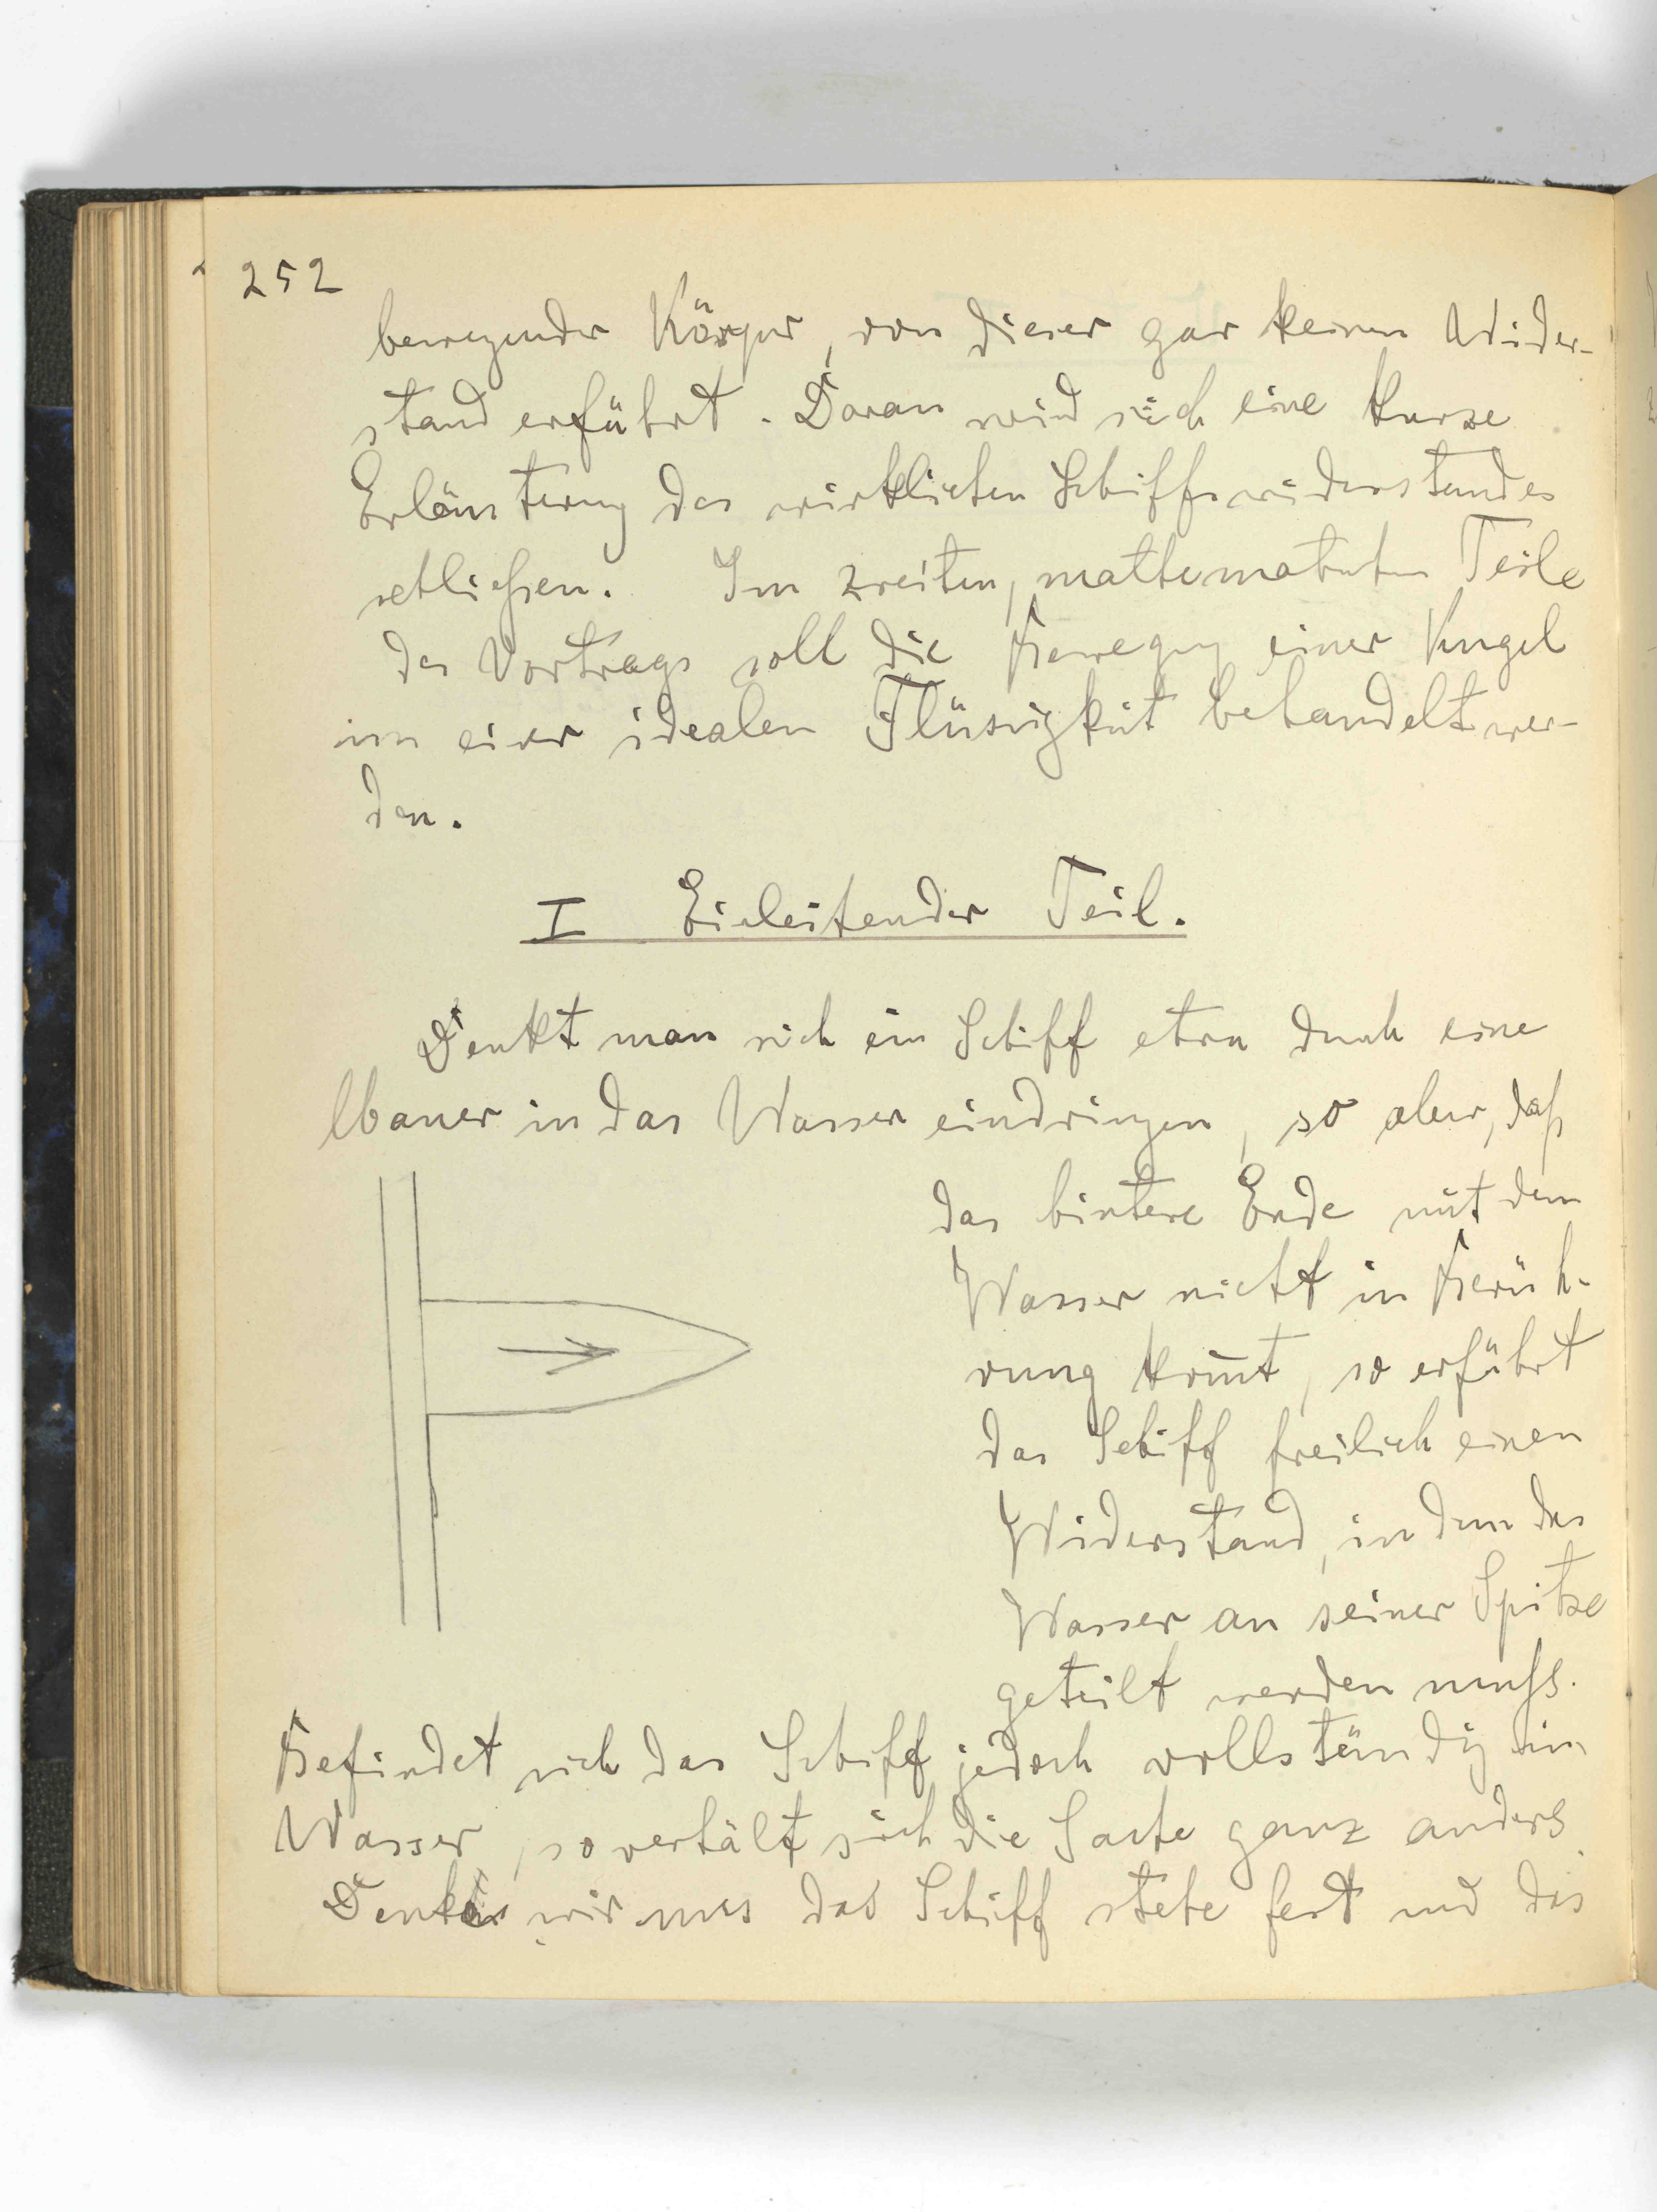 252
bewegender Körper, von dieser gar keinen Wider-
stand erfährt. Daran wird sich eine kurze
Erläuterung des wirklichen Schiffswiderstandes
schließen. Im zweiten, mathematischen Teile
des Vortrags soll die Bewegung einer Kugel
in einer idealen Flüssigkeit behandelt wer-
den.
I Einleitender Teil.
Denkt man sich ein Schiff etwa durch eine
Mauer in das Wasser eindringen, so aber, daß
das hintere Ende mit dem
Wasser nicht in Berüh-
rung kom̄t, so erfährt
das Schiff freilich einen
Widerstand, indem das
Wasser an seiner Spitze
geteilt werden muß.
Befindet sich das Schiff jedoch vollständig im
Wasser, so verhält sich die Sache ganz anders.
Denken wir uns das Schiff stehe fest und das